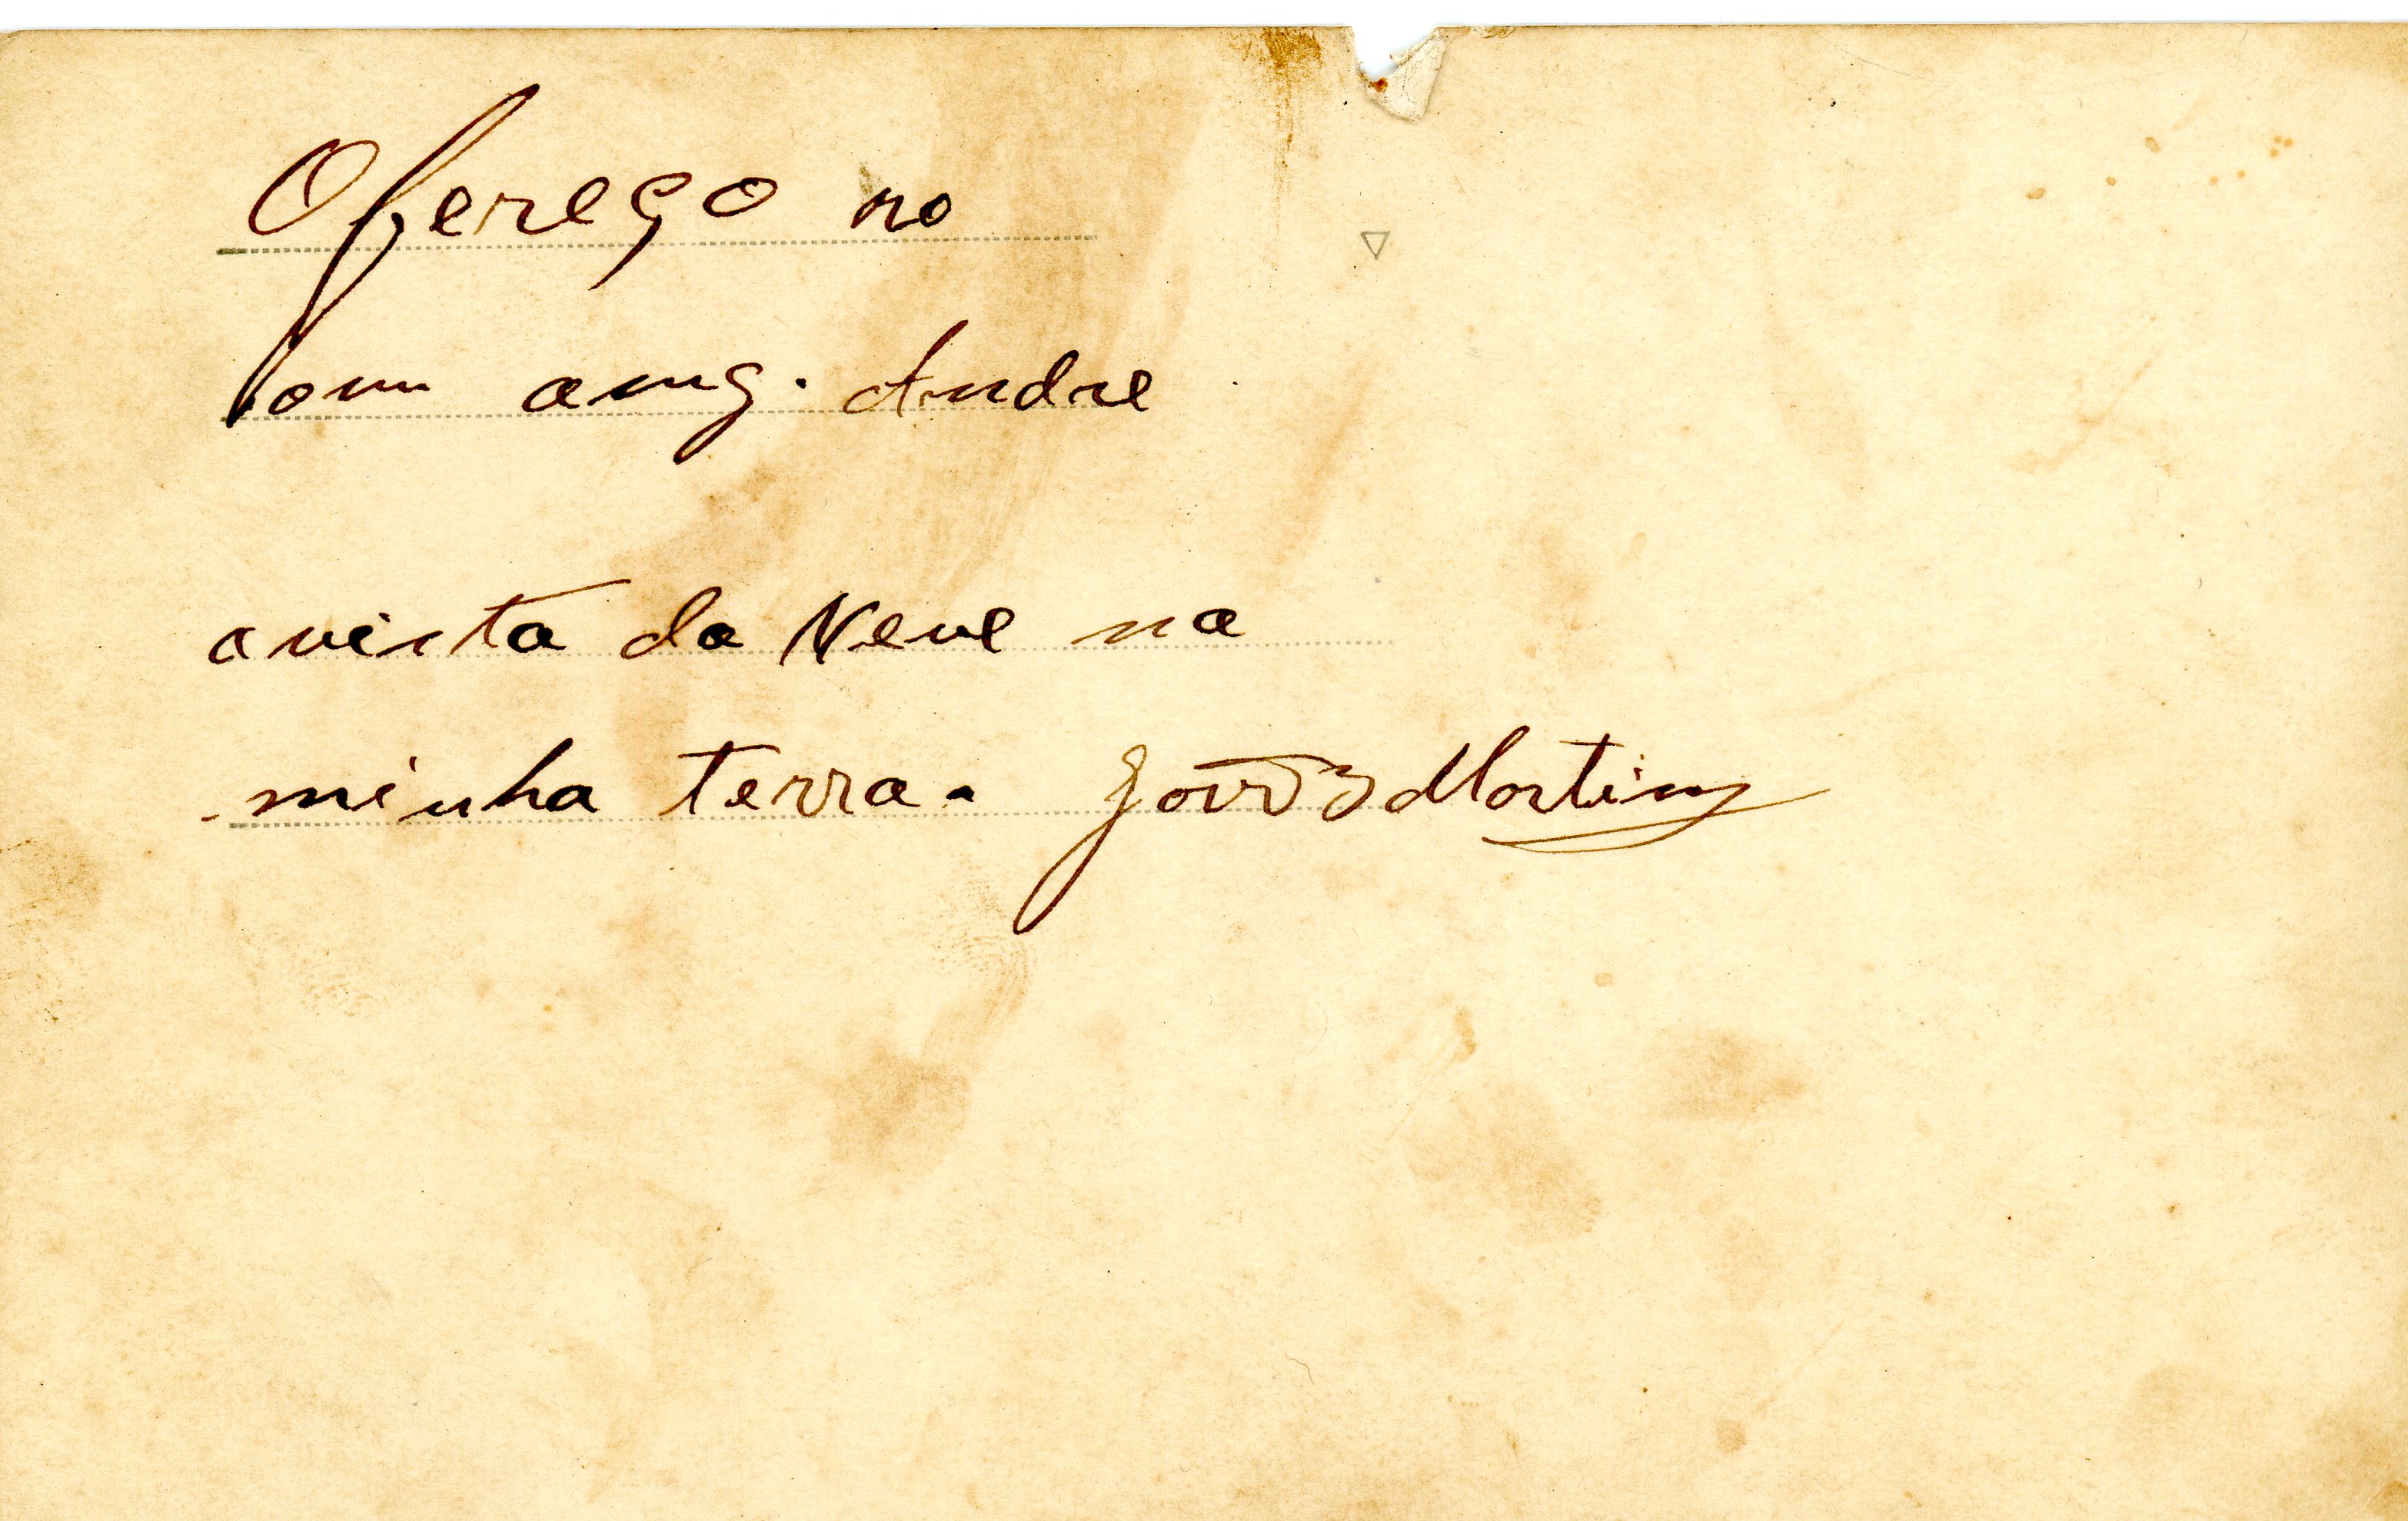 Ofereço no
bom amg. Andre
a vista da Neve na
minha terra. João Martins